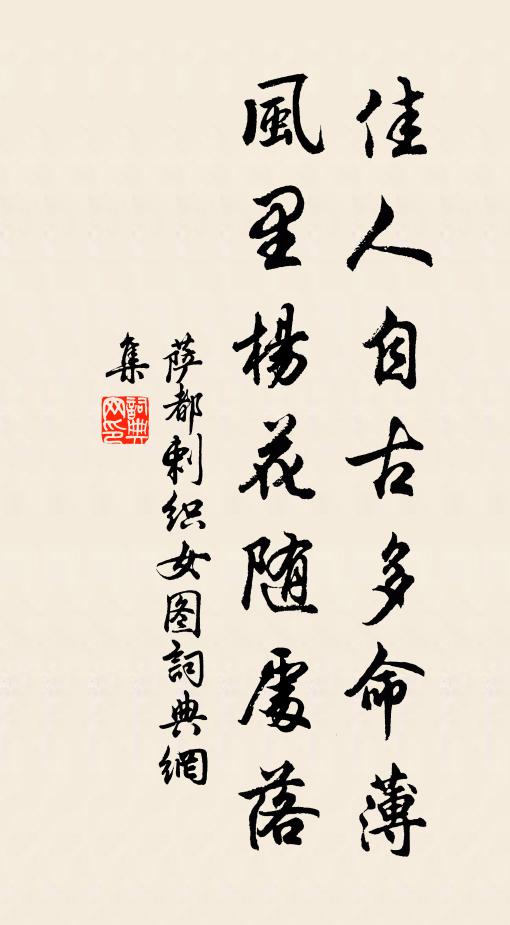 佳人自古多命薄
風里楊花随處落
萨都剌织女图詞典網
集
詞典
网印